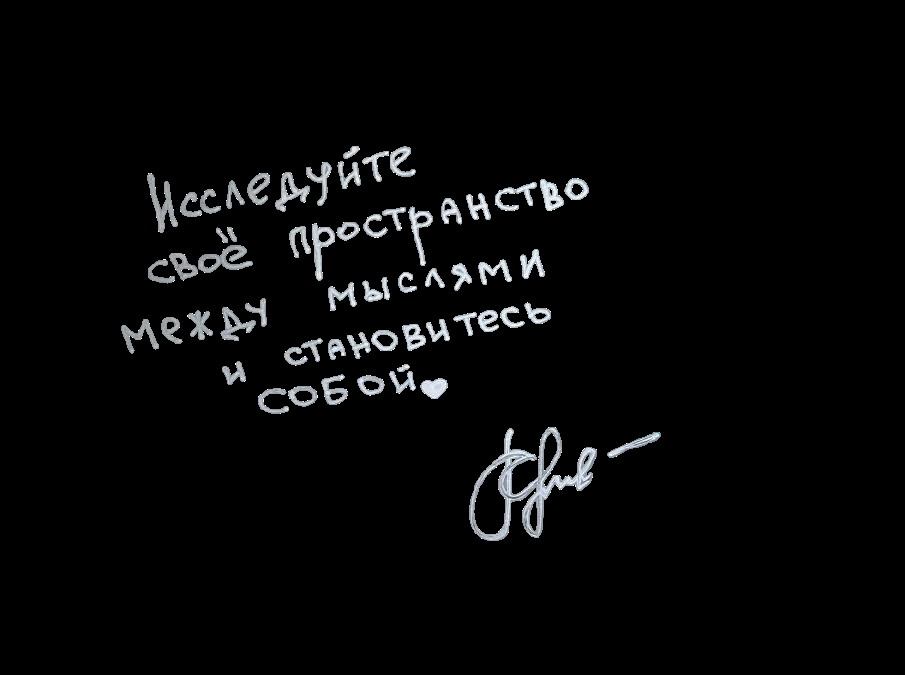 Исследуйте
своё пространство
между мыслями
и становитесь
собой